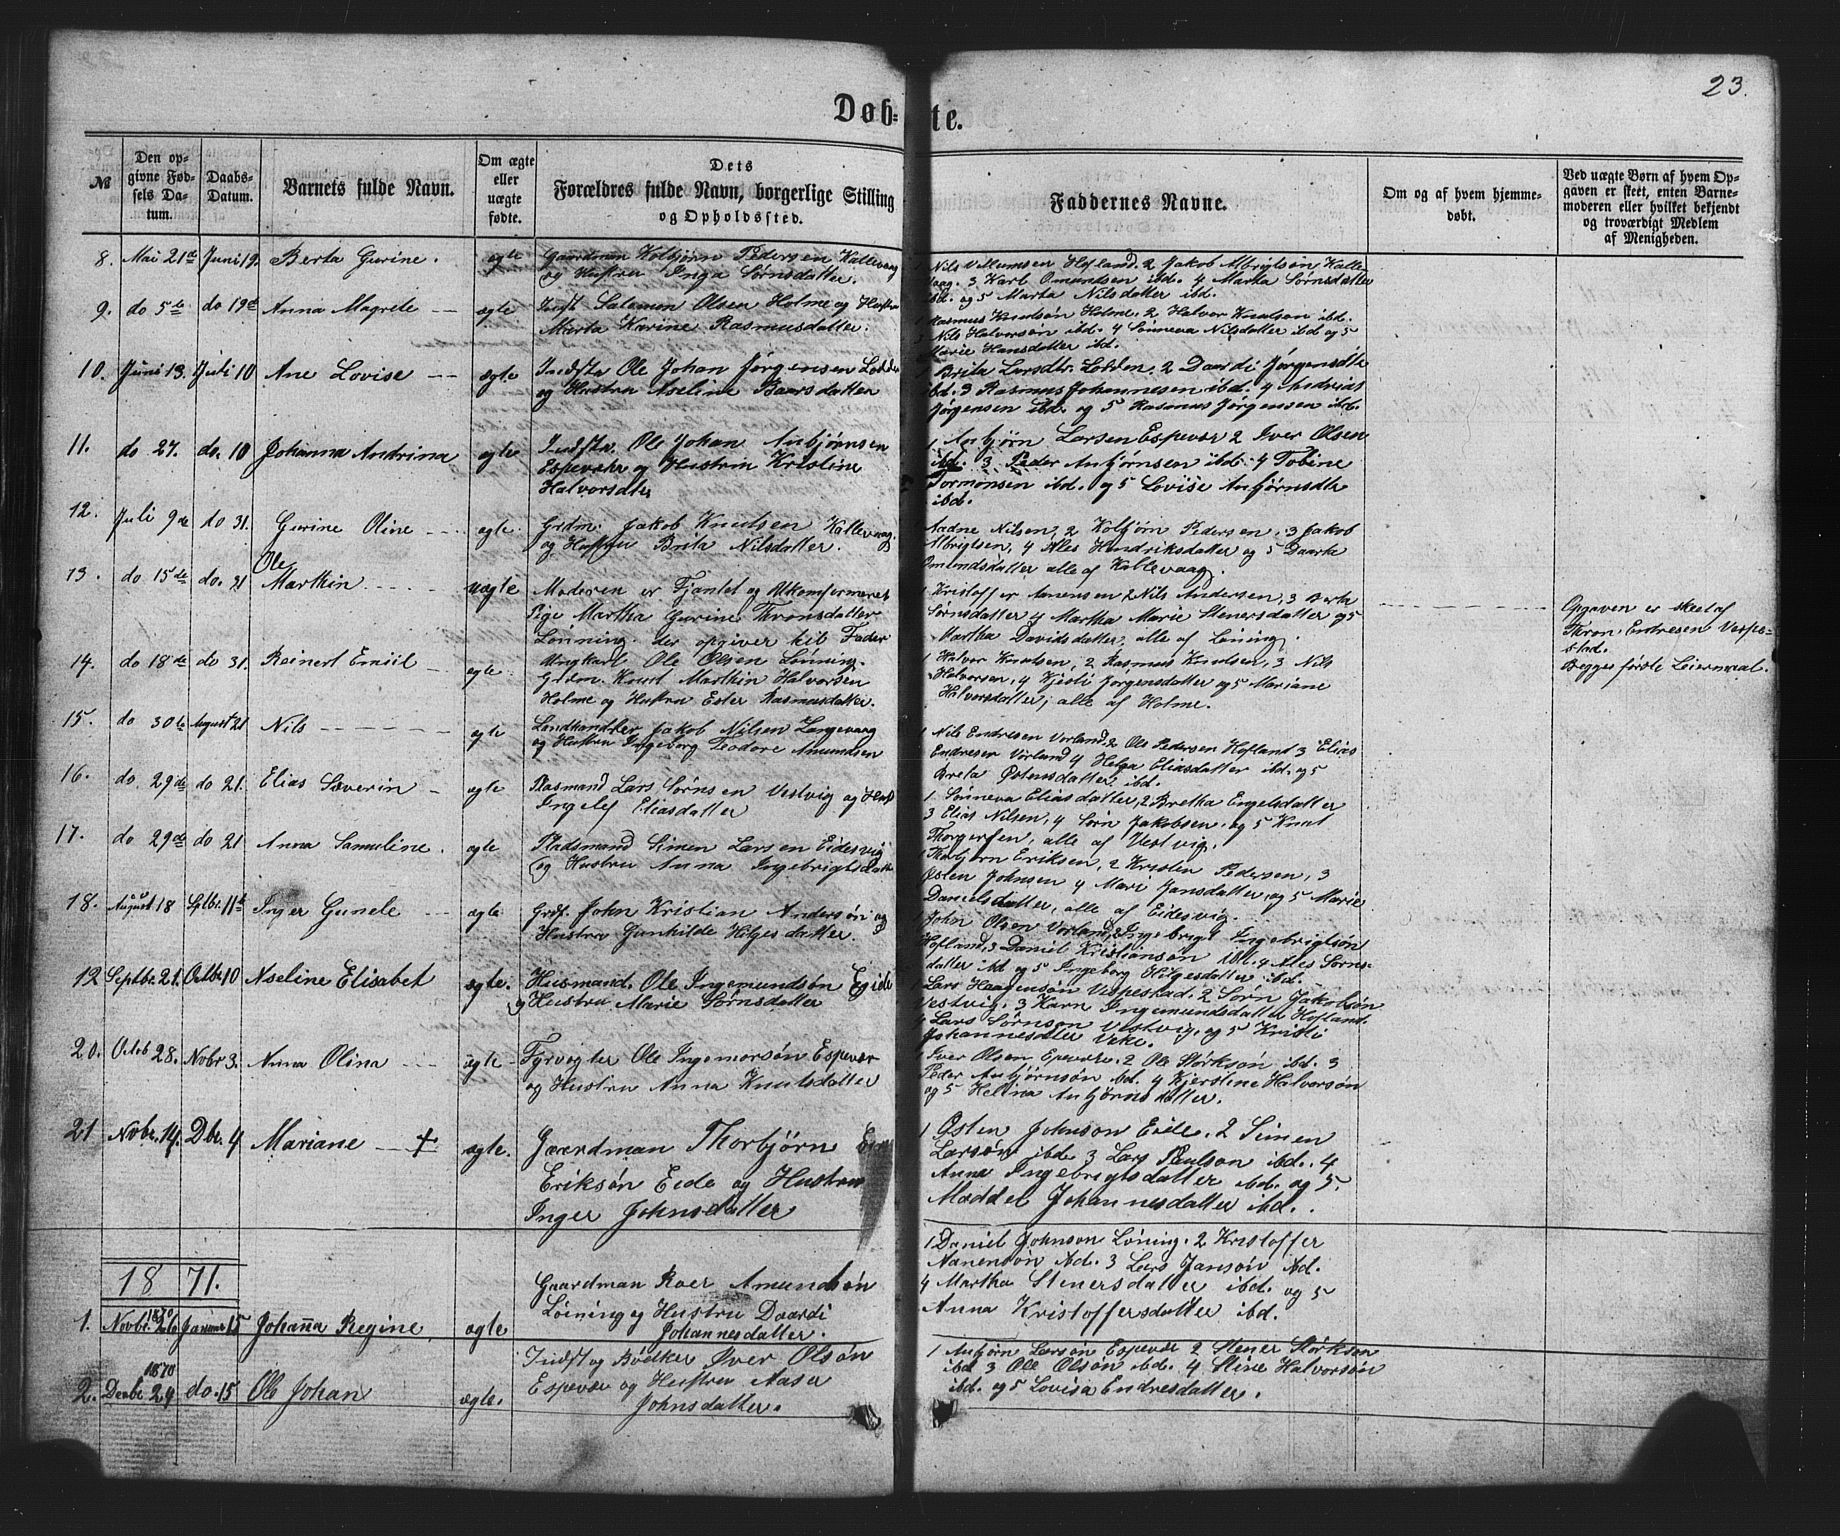 23.
Døb-te.
№
Den op-
givne Fød-
sels Da-
tum.
Daabs-
Datum.
Barnets fulde Navn.
Om ægte
eller
uægte
fødte.
Dets
Forældres fulde Navn, borgerlige Stilling
og Opholdssted.
Faddernes Navne.
Om og af hvem hjemme-
døbt.
Ved uægte Børn af hvem Op-
gaven er skeet, enten Barne-
moderen eller hvilket bekjendt
og troværdigt Medlem
af Menigheden.
8. Mai 21de Juni 19. Berta Gurine. ægte
Gaardman Kolbjørn Pedersen Kallevaag
og Hustru Inga Sørnsdatter.
1 Nils Villumsen Hofland. 2 Jakob Albrigtson Kalle-
vaag. 3 Karl Omundsen ibd. 4 Marta Sørnsdatter
ibd. og 5 Marta Nilsdatter ibd.
9. do 5te do 19de Anna Magrete ægte
Indst Salemon Olsen Holme og Hustru
Marta Karine Rasmusdatter.
1 Rasmus Knudsøn Holme, 2 Halvor Knudson ibd.
3 Nils Halvorsøn ibd. 4 Sønneva Nilsdatter ibd og 5
Marie Hansdatter ibd.
10. Juni 13. Juli 10 Ane Lovise ægte
Indste Ole Johan Jørgensen Lodden
og Hustru Aseline Baarsdatter
1 Brita Larsdtr. Lodden, 2 Daardi Jørgensdtr
ibd. 3 Rasmus Johannesen ibd. 4 Andrias
Jørgensen ibd. og 5 Rasmus Jørgensen ibd.
11. do 27. do. 10 Johanna Andrina ægte
Indste. Ole Johan Anbjørnsen
Espevær og Hustru Kristine
Halvorsdter
1 Anbjørn Larsen Espevær 2 Iver Olsen
ibd. 3 Peder Anbjørnsen ibd. 4 Tobine
Tormonsen ibd. og 5 Lovise Anbjørnsdtr
ibd.
12. Juli 9de do 31. Gurine Oline ægte.
Grdm. Jakob Knutsen Kallevaag.
og Hustru Brita Nilsdatter.
Aadne Nilsen, 2 Kolbjørn Pedersen, 3 Jakob
Albrigtsen, 4 Ales Hendriksdatter og 5 Daarte
Omundsdatter alle af Kallevaag.
13. do 15de do. 31 Ole
Marthin uægte
Moderen er Fjantet og Ukonfermeret
Pige Martha Gurine Thronsdatter
Lønning. der opgiver til Fader
Ungkarl Ole Olsen Lønning.
1 Kristoffer Anensen, 2 Nils Andersen, 3 Berta
Sørnsdatter 4 Martha Marie Stenersdatter og 5
Martha Davidsdatter, alle af Løning.
Opgaven er skeet af
Thron Endresen Vespes-
tad.
Begges første Leiermaal.
14. do 18de do 31. Reinert Emiil ægte.
Grdm. Knut Marthin Halvorsen
Holme og Hustru Ester Rasmusdatter.
1 Halvor Knudsen, 2 Rasmus Knudsen, 3 Nils
Halvorsen, 4 Kjesti Jørgensdatter og 5 Mariane
Halvorsdatter, alle af Holme.
15. do 30te August 21 Nils ægte
Landhandler Jakob Nilsen Langevaag
og Hustru Ingeborg Teodore Amundsen
1 Nils Endresen Vorland, 2 Ole Pedersen Hofland 3 Elias
Endresen Vorland 4 Helga Eliasdatter ibd. og 5
Breta Østensdatter ibd.
16. do 29de do 21. Elias Severin ægte
Plasmand Lars Sørnsen Vestvig og Hust
Ingelef Eliasdatter
1. Sønneva Eliasdatter, 2 Bretha Engelsdatter
3 Elias Nilsen, 4 Sørn Jakobsen. og 5 Knut
Thorgersen, alle af Vestvig.
17. do 29de do 21 Anna Samuline. ægte
Pladsmand Simen Larsen Eidesvig
og Hustru Anna Ingebrigtsdatter
1 Thorbjørn Eriksen, 2 Kristen Pedersen, 3
Østen Johnsen 4 Mari Jansdatter, og 5 Marie
Danielsdatter, alle af Eidesvig.
18. August 18 Septbr. 11te Inger Gunele ægte
Grdf. John Kristian Andersøn og
Hustru Gunhilde Helgesdatter.
1 John Olsen Vorland, 2 Ingebrigt Ingebrigtsøn
Hofland, 3 Daniel Kristiansøn ibd. 4 Ales Sørns-
datter ibd og 5 Ingeborg Helgesdatter ibd.
12 Septbr. 21. Octbr 10 Aseline Elisabet ægte.
Husmand. Ole Ingemundsøn Egide
og Hustru Marie Sørnsdatter
1 Lars Haagensøn Vespestad. 2 Sørn Jakobsøn
Vestvig. 3 Karn Ingemundsdatter Hofland.
4 Lars Sørnson Vestvig. og 5 Kristi
Johannesdatter Veke.
20. Octob 28. Nobr 3. Anna Olina ægte
Fyrvogter Ole Ingemorsøn Espevær
og Hustru Anna Knutsdatter
1 Iver Olsen Epevær. 2 Ole Størksøn ibd. 3
Peder Anbjørnsøn ibd. 4 Kjerstine Halvorsøn
og 5 Helina Anbjørnsdatter.
21 Nobr. 14. Dbr. 4 Mariane + ægte.
Gaardman Thorbjørn
Eriksøn Eide og Hustru
Inger Johnsdatter
1 Østen Johnson Eide. 2 Simen
Larsøn ibd. 3 Lars Paulson ibd. 4
Anna Ingebrigtsdatter ibd. og 5.
Maddel Johannesdatter ibd.
1871.
1. Novbr. 1870 26 Januar 15 Johanna Regine ægte
Gaardman Roer Amundsøn
Løining og Hustru Daardi
Johannesdatter.
1 Daniel Johnson Løning. 2 Kristoffer
Aanensøn ibd. 3 Lars Jansøn ibd.
4 Martha Stenersdatter ibd. og 5
Anna Kristoffersdatter ibd.
2. 1870 Decbr 24 do. 15 Ole Johan ægte.
Indst og Bødker Iver Olsøn
Espevær og Hustru Aasa
Johnsdatter.
1 Anbjørn Larsøn Espevær 2 Stener Størkson
ibd 3 Ole Olsøn ibd. 4 Stine Halvorsøn
ibd. og 5 Lovisa Endresdatter.